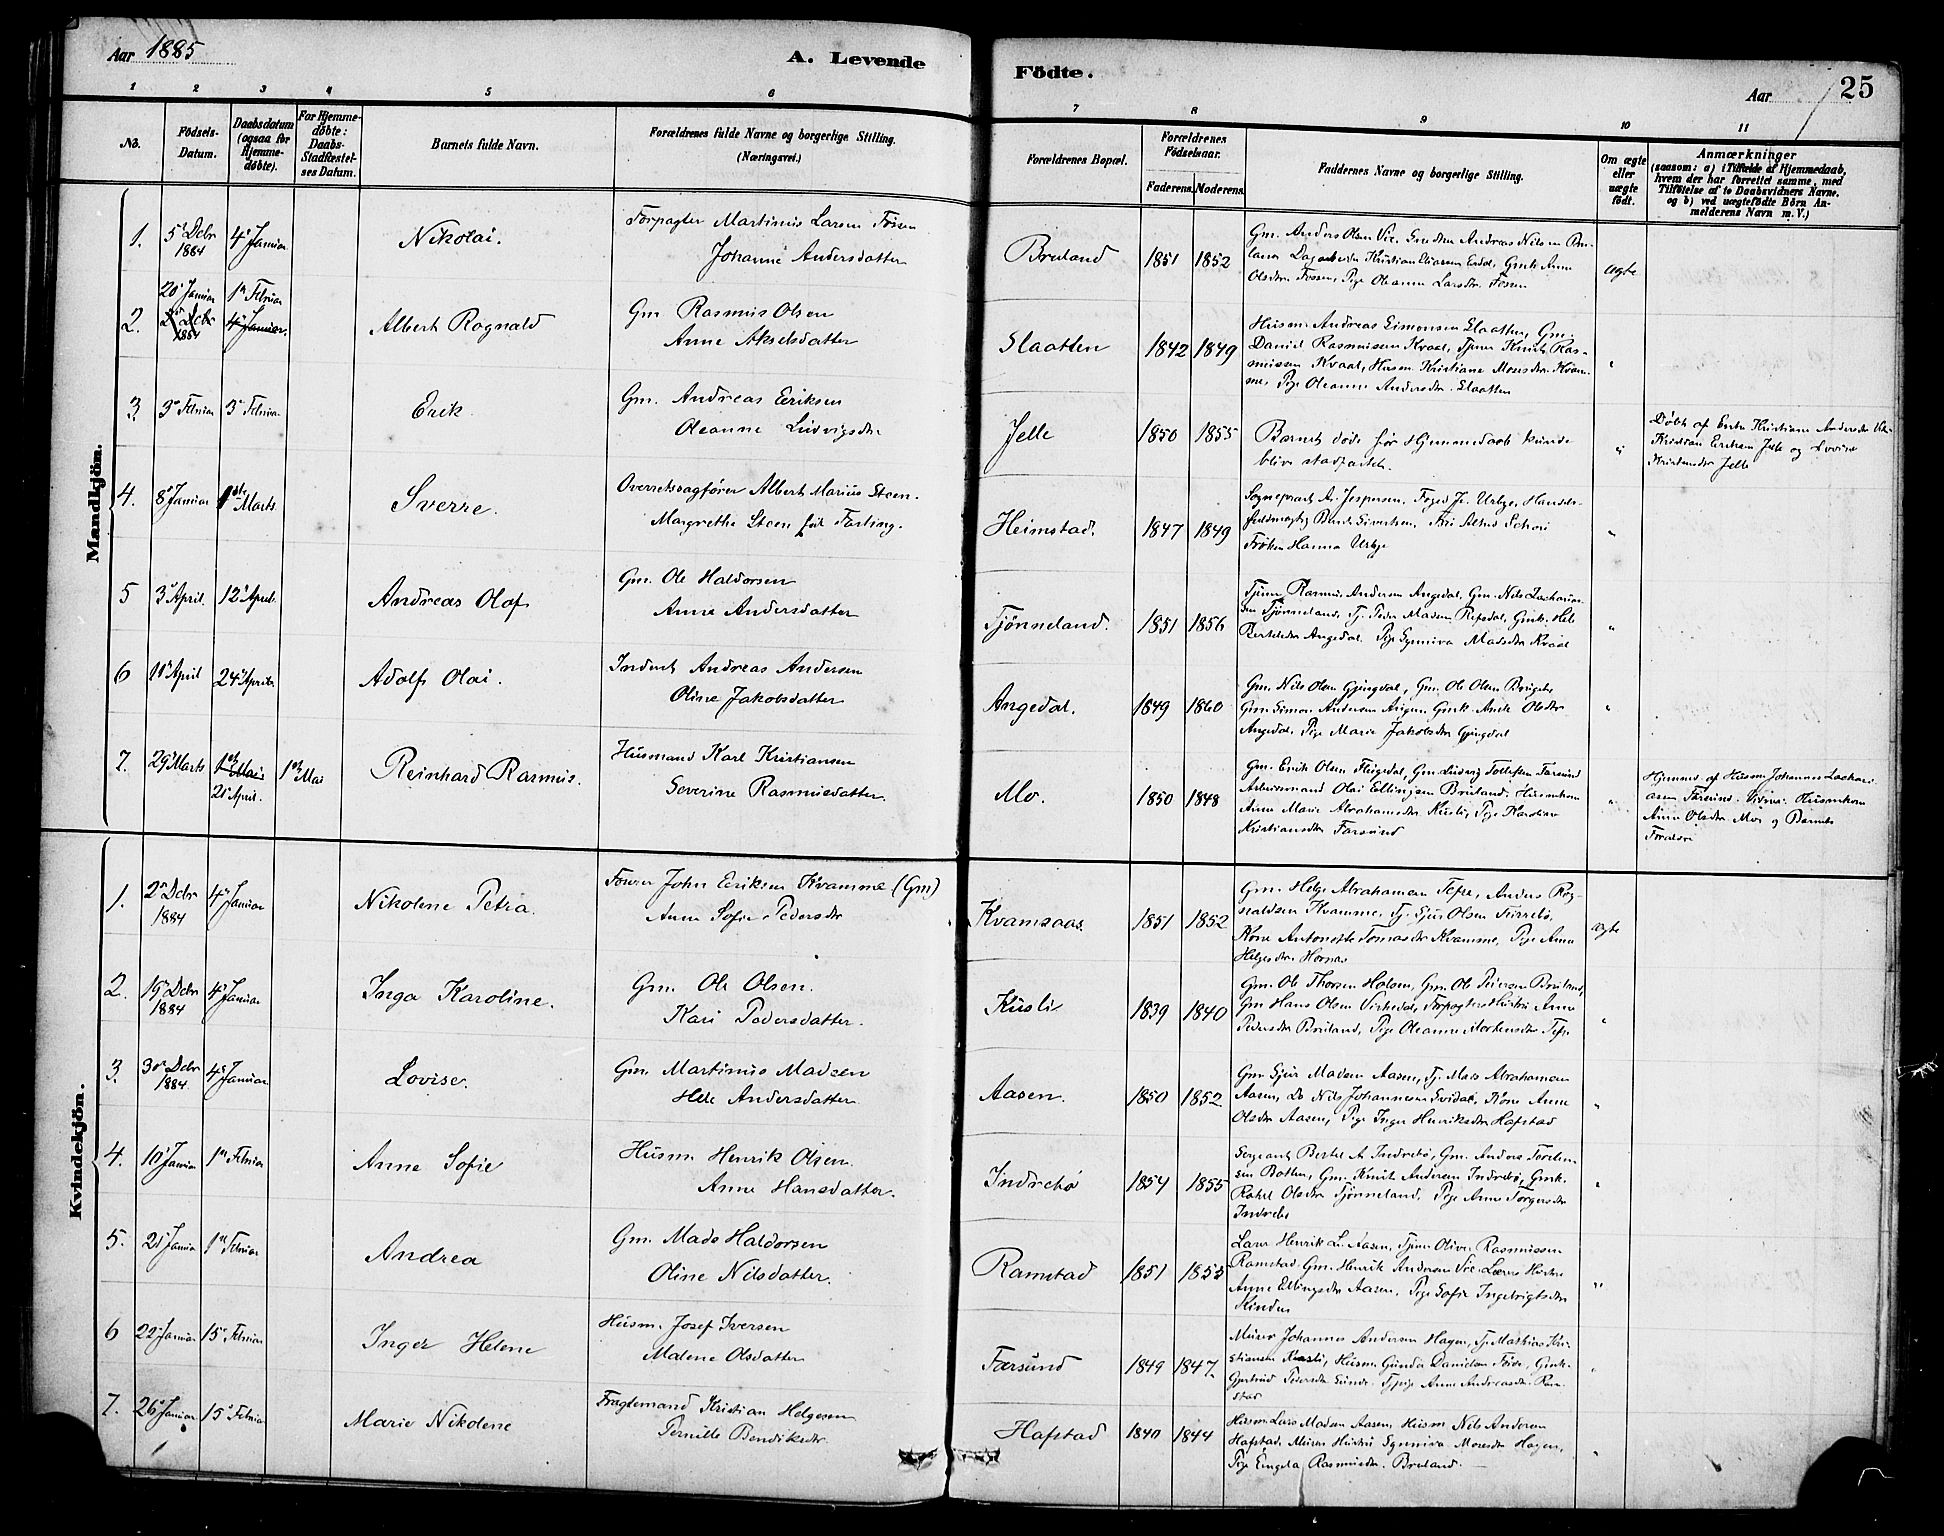 Aar 1885
A. Levende Födte.
Aar
25
1 2 3 4 5 6 7 8 9 10 11
No.
Födsels-Datum.
Daabsdatum (ogsaa for Hjemme-døbte).
For Hjemme-døbte: Daabs-Stadfæstel-ses Datum.
Barnets fulde Navn.
Forældrenes fulde Navne og borgerlige Stilling. (Næringsvei.)
Forældrenes Bopæl.
Forældrenes Födselsaar. Faderens. Moderens.
Faddernes Navne og borgerlige Stilling.
Om ægte eller uægte født.
Anmærkninger (saasom: a) i Tilfælde af Hjemmedaab, hvem der har forrettet samme, med Tilföielse af to Daabsvidners Navne. og b) ved uægtefödte Börn An-melderens Navn m.V.)
Mandkjön.
1. 5 Decbr 1884 4 Januar Nikolai.
Forpagter Martinus Larsen Fossen
Johanne Andersdatter
Bruland 1851 1852
Gm. Anders Olsen Vie, Andreas Nilsen
Kristian Eliasen Gmk. Anne
Olsdtr Fossen, Pige Oleanne Larsdtr. Fossen
ægte
2. 20 Januar 1st Februar
Decbr 1884 4 Januar.
Albert Rognald
Gm Rasmus Olsen
Anne Akselsdatter
Slaatten 1842 1849
Husm. Andreas Simonsen Slaatten, Gm.
Daniel Rasmussen Kvaal, Tjener Knut Ras-
mussen Kvaal, Husm. Kristiane Mosesdtr. Kvam-
me, Pige Oleanne Andersdtr Slaatten
"
3. 3 Februar 3 Februar Erik
Gm. Andreas Eriksen
Oleanne Ludvigsdtr
Jelle 1850 1855
Barnet døde før Hjemmedaab kunde
blive stadfæstet.
"
Døbt af Enke Kristiane Andersdtr
Kristian Eriksen Jelle og
Kristensdtr Jelle
4. 8 Januar 1ste Marts Sverre.
Overretssagfører Albert Marius Steen.
Margrethe Steen født Farting.
Heimstad. 1847 1849
Sogneprest A. Jespersen, Foged J. Urbye, Handels-
fuldmægtig Bernt Sivertsen, Astrid
Frøken Hanna Urbye
"
5 3 April. 12 April. Andreas Olaf
Gm. Ole Haldorsen
Anne Andersdatter
Tjønneland. 1851 1856
Tjener Rasmus Andersen Angedal, Gm. Nils Zacharias-
sen Tjønneland, Tj. Peder Madsen Refsdal, Gmk. Hele
Bertelsdtr Angedal. Pige Synniva Madsdtr Kvaal
"
6 11 April 24 April. Adolf Olai.
Inderst Andreas Andersen
Oline Jakobsdatter
Angedal. 1849 1860
Gm. Nils Olsen Gjingdal, Gm. Ole Olsen
Gm Simon Andersen Gmk. Olsdtr
Angedal, Pige Marie Jakobsdtr Gjingdal
"
7. 29 Marts 1st Mai 1st Mai
21 April.
Reinhard Rasmus.
Husmand Karl Kristiansen
Severine Rasmusdatter.
Mo. 1850 1848
Gm. Erik Olsen Flugedal, Gm. Ludvig Tollefsen Farsund
Arbeidsmand Olai Ellingsen Bruland, Husmkone
Anne Marie Abrahamsdtr Kusli, Pige Karoline
Kristiansdtr Farsund
"
Hjemmed. af Husm Johannes Zachari-
asen Farsund. Husmkone
Anne Olsdtr Mo og Barnets
Forældre
Kvindekjön.
1. 2 Decbr 1884 4 Januar Nikolene Petra.
John Eriksen Kvamme (Gm)
Anne Sofie Pedersdtr
Kvamsaas. 1851 1852
Gm. Helge Abrahamsen Tefre, Anders Rog-
naldsen Kvamme, Tj. Sjur Olsen
Kone Antonette Tomasdtr Kvamme, Pige Anne
Helgesdtr Hornas
ægte
2. 19 Decbr 1884 4 Januar Inga Karoline.
Gm. Ole Olsen.
Kari Pedersdatter.
Kusli 1839 1840
Gm. Ole Thorsen Halsen, Gm. Ole Petersen Bruland,
Gm Hans Olsen Virkedal, Forpagters Hustru Anne
Pedersdtr Bruland, Pige Oleanne Mortensdtr Tefre
"
3. 30 Decbr 1884. 4 Januar Lovise.
Gm. Martinus Madsen
Hele Andersdatter
Aasen. 1850 1852
Gm Sjur Madsen Aasen, Tj. Mads Abrahamsen
Aasen, Do Nils Johannesen Svidal, Kone Anne
Olsdtr Aasen, Pige Inger Henriksdtr Hafstad
"
4. 10 Januar 1st Februar Anne Sofie
Husm Henrik Olsen.
Anne Hansdatter.
Indrebø 1854 1855
Sergeant Bertel A Indrebø, Gm. Anders Torstens-
sen Botten, Gm. Knut Andersen Indrebø, Gmk.
Rakel Olsdtr Tjønneland, Pige Anne Torgersdtr
Indrebø
"
5. 21 Januar 1st Februar Andrea
Gm. Mads Haldorsen
Oline Nilsdatter.
Ramstad 1851 1855
Lærer Henrik L. Aasen, Tjener Oliver Rasmussen
Ramstad. Gm. Henrik Andersen Vie. Lærers Hustru
Anne Ellingsdtr Aasen, Pige Sofie Ingebrigtsdtr
Hindnes
"
6 22 Januar 15 Februar Inger Helene
Husm. Josef Iversen
Malene Olsdatter
Farsund 1849 1847.
Murer Johannes Andersen Hagen, Tj. Mathias Kri-
stiansen Kusli, Husm Gunder Danielsen Førde, Gmk.
Gjertrud Pedersdtr Sunde. Tjpige Anne Andreasdtr. Ram-
stad
"
7. 26 Januar 15 Februar Marie Nikolene
Fragtemand Kristian Helgesen
Pernille Bendiksdtr.
Hafstad 1840 1844
Husm. Lars Madsen Aasen, Husm Nils Andersen
Hafstad, Murer Hustru Synniva Mosesdtr Hagen,
Pige Engela Rasmusdtr. Bruland.
"